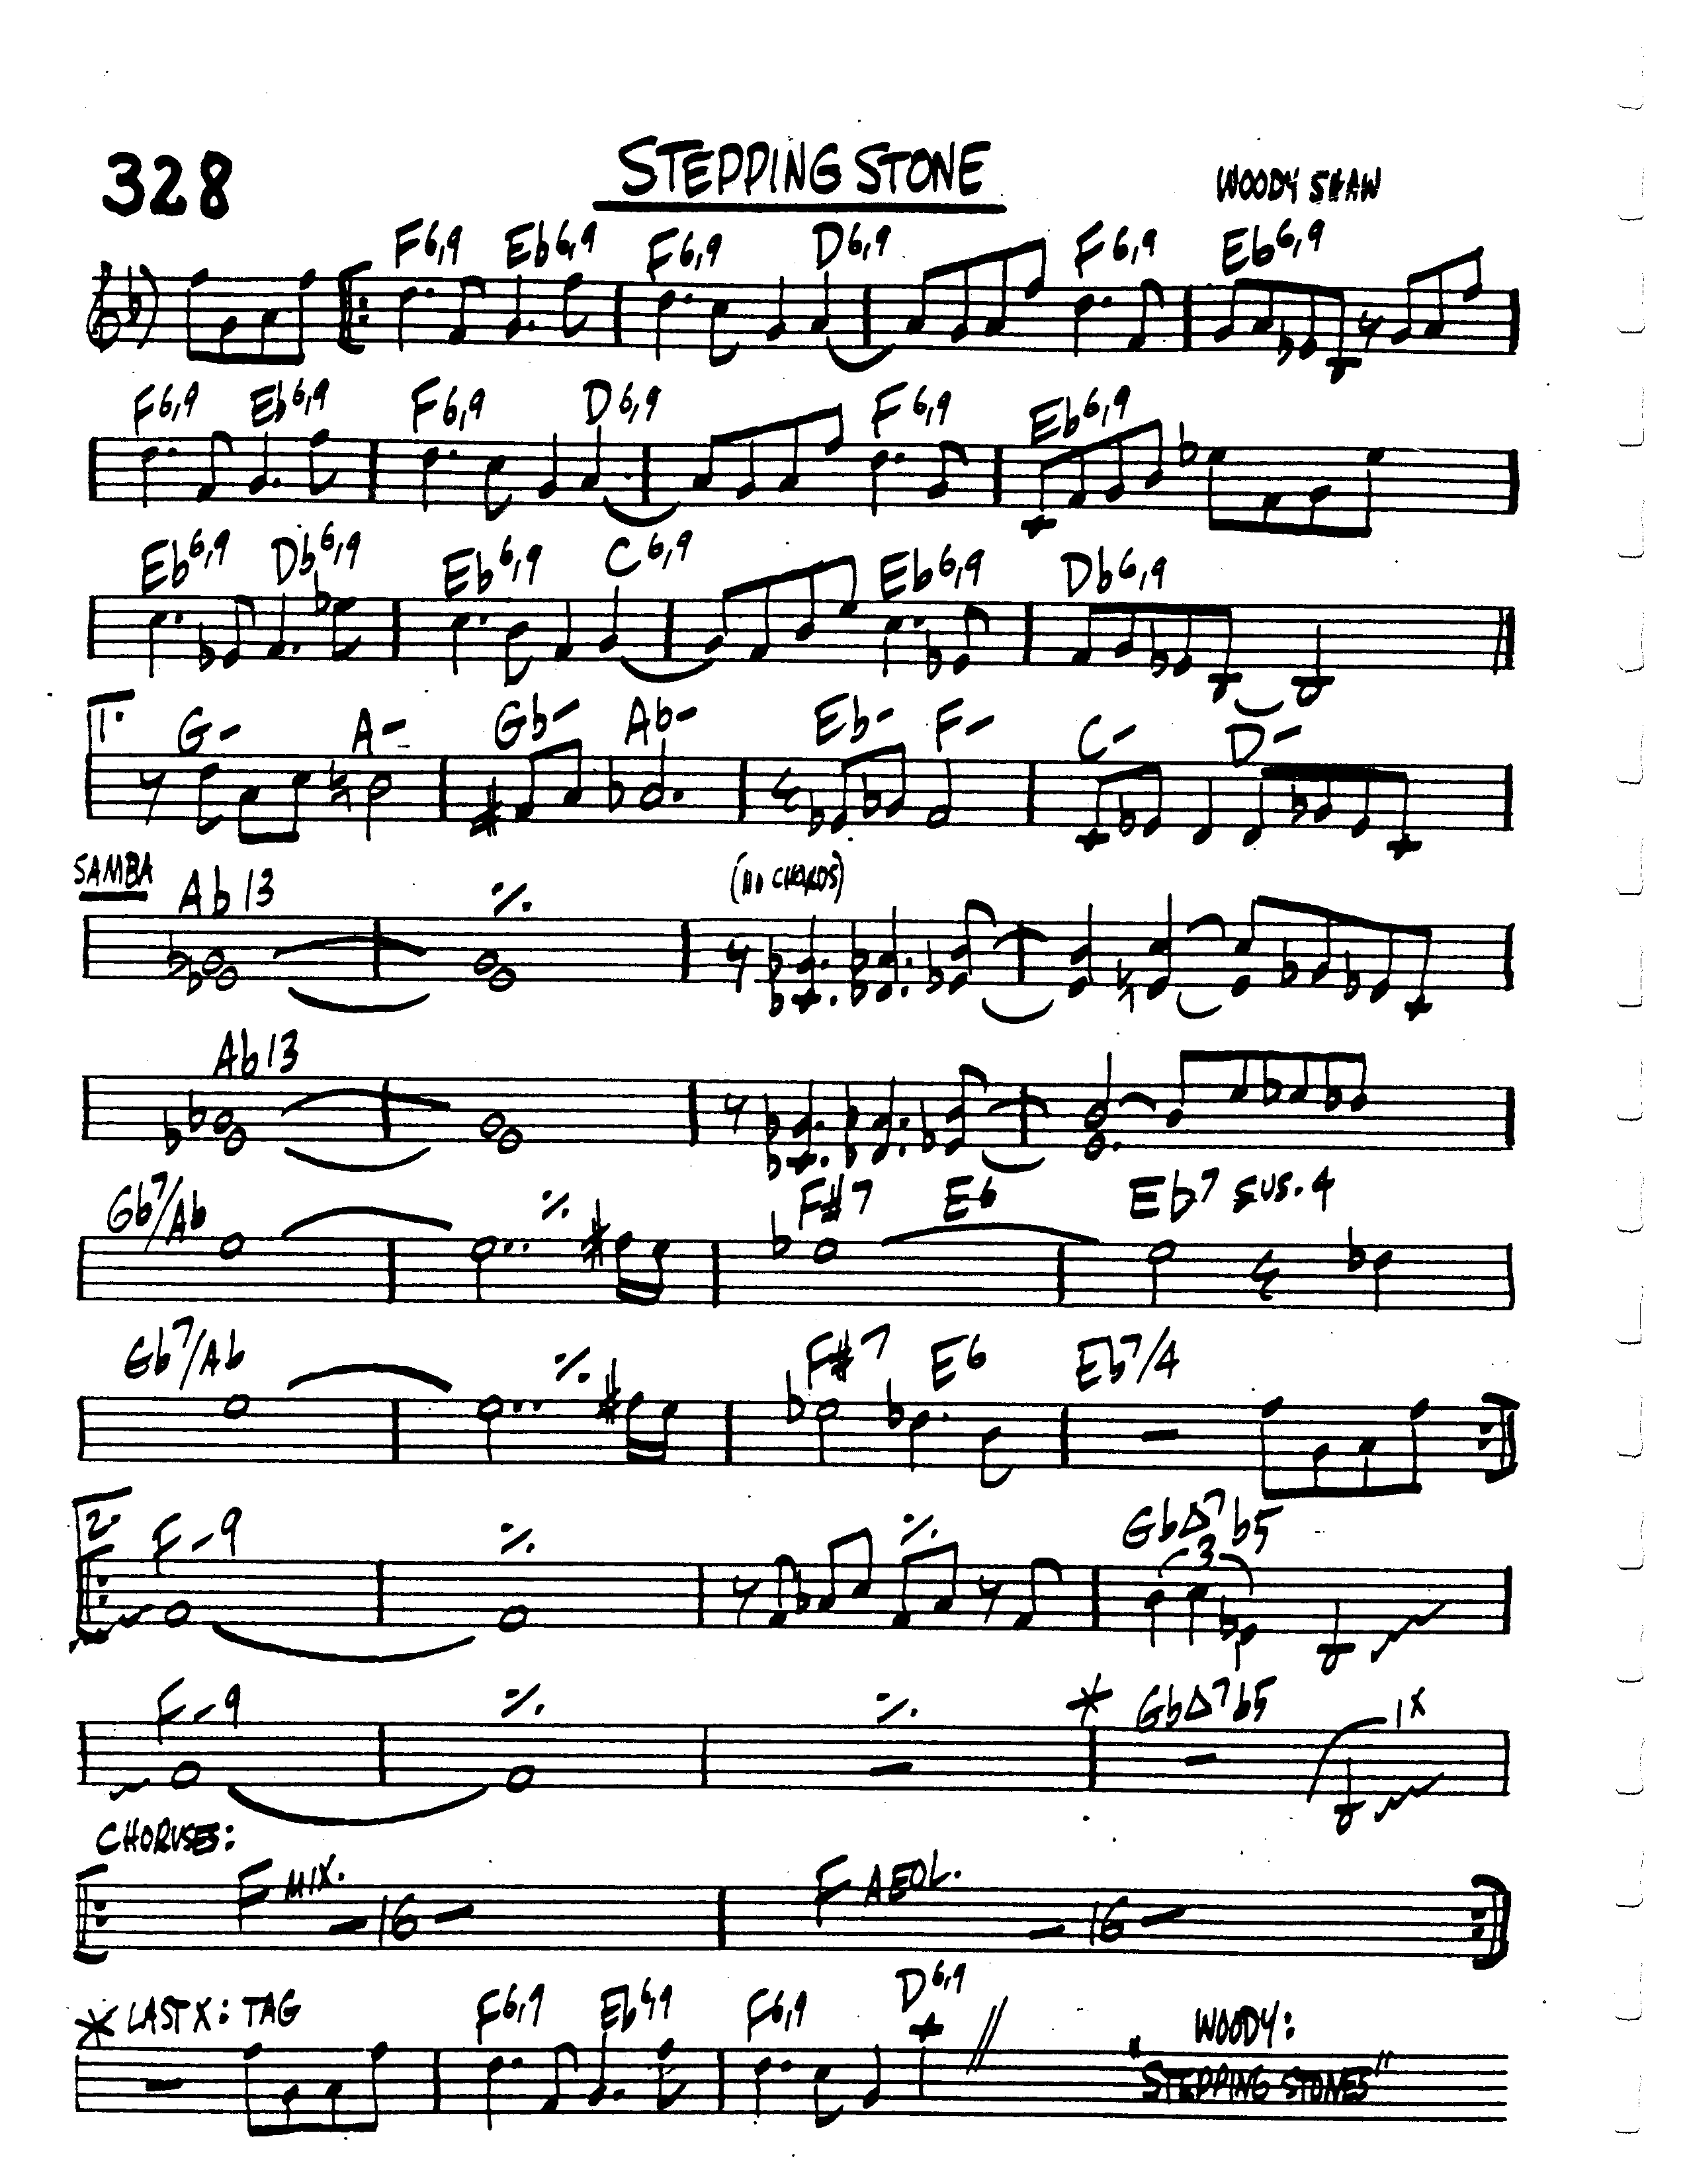 328 STEPPING STONE WOODY SHAW
F6,9 Eb6,9 F6,9 D6,9 F6,9 Eb6,9
F6,9 Eb6,9 F6,9 D6,9 F6,9 Eb6,9
Eb6,9 Db6,9 Eb6,9 C6,9 Eb6,9 Db6,9
1. G- A- Gb- Ab- Eb- F- C- D-
SAMBA Ab13 (NO CHORDS)
Ab13
Gb7/Ab F#7 E6 Eb7 SUS.4
Gb7/Ab F#7 E6 Eb7/4
2. F-9 GbΔ7b5
3
F-9 * GbΔ7b5 1X
CHORUSES:
F MIX. 16 F AEOL. 16
* LAST X: TAG F6,9 Eb6,9 F6,9 D6,9 WOODY:
"STEPPING STONES"